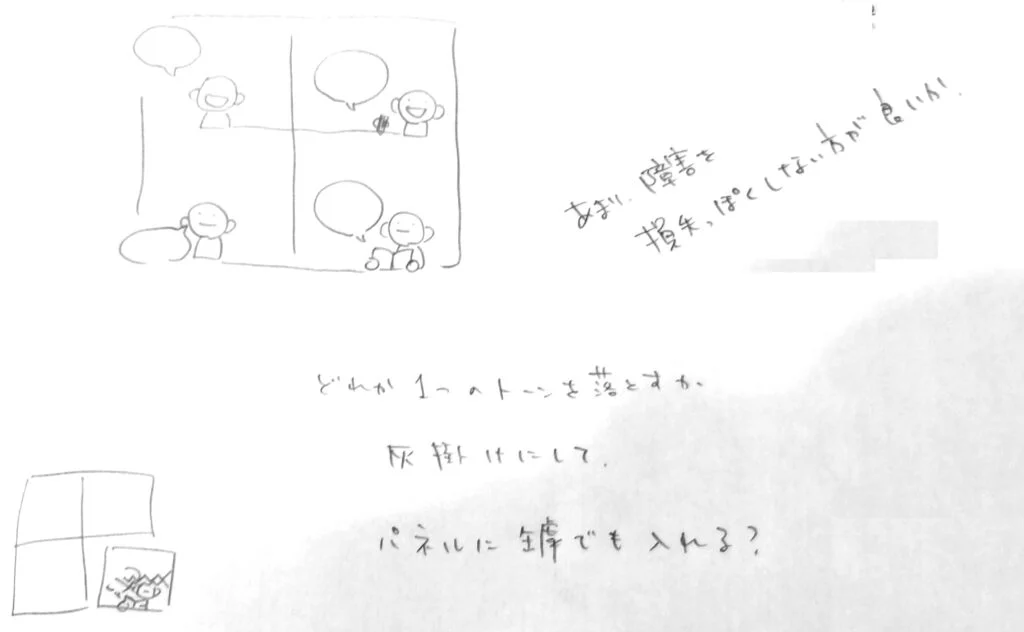 あまり、障害を
損失っぽくしない方が良いか.
どれか1つのトーンを落とすか.
灰掛けにして.
パネルに でも入れる?